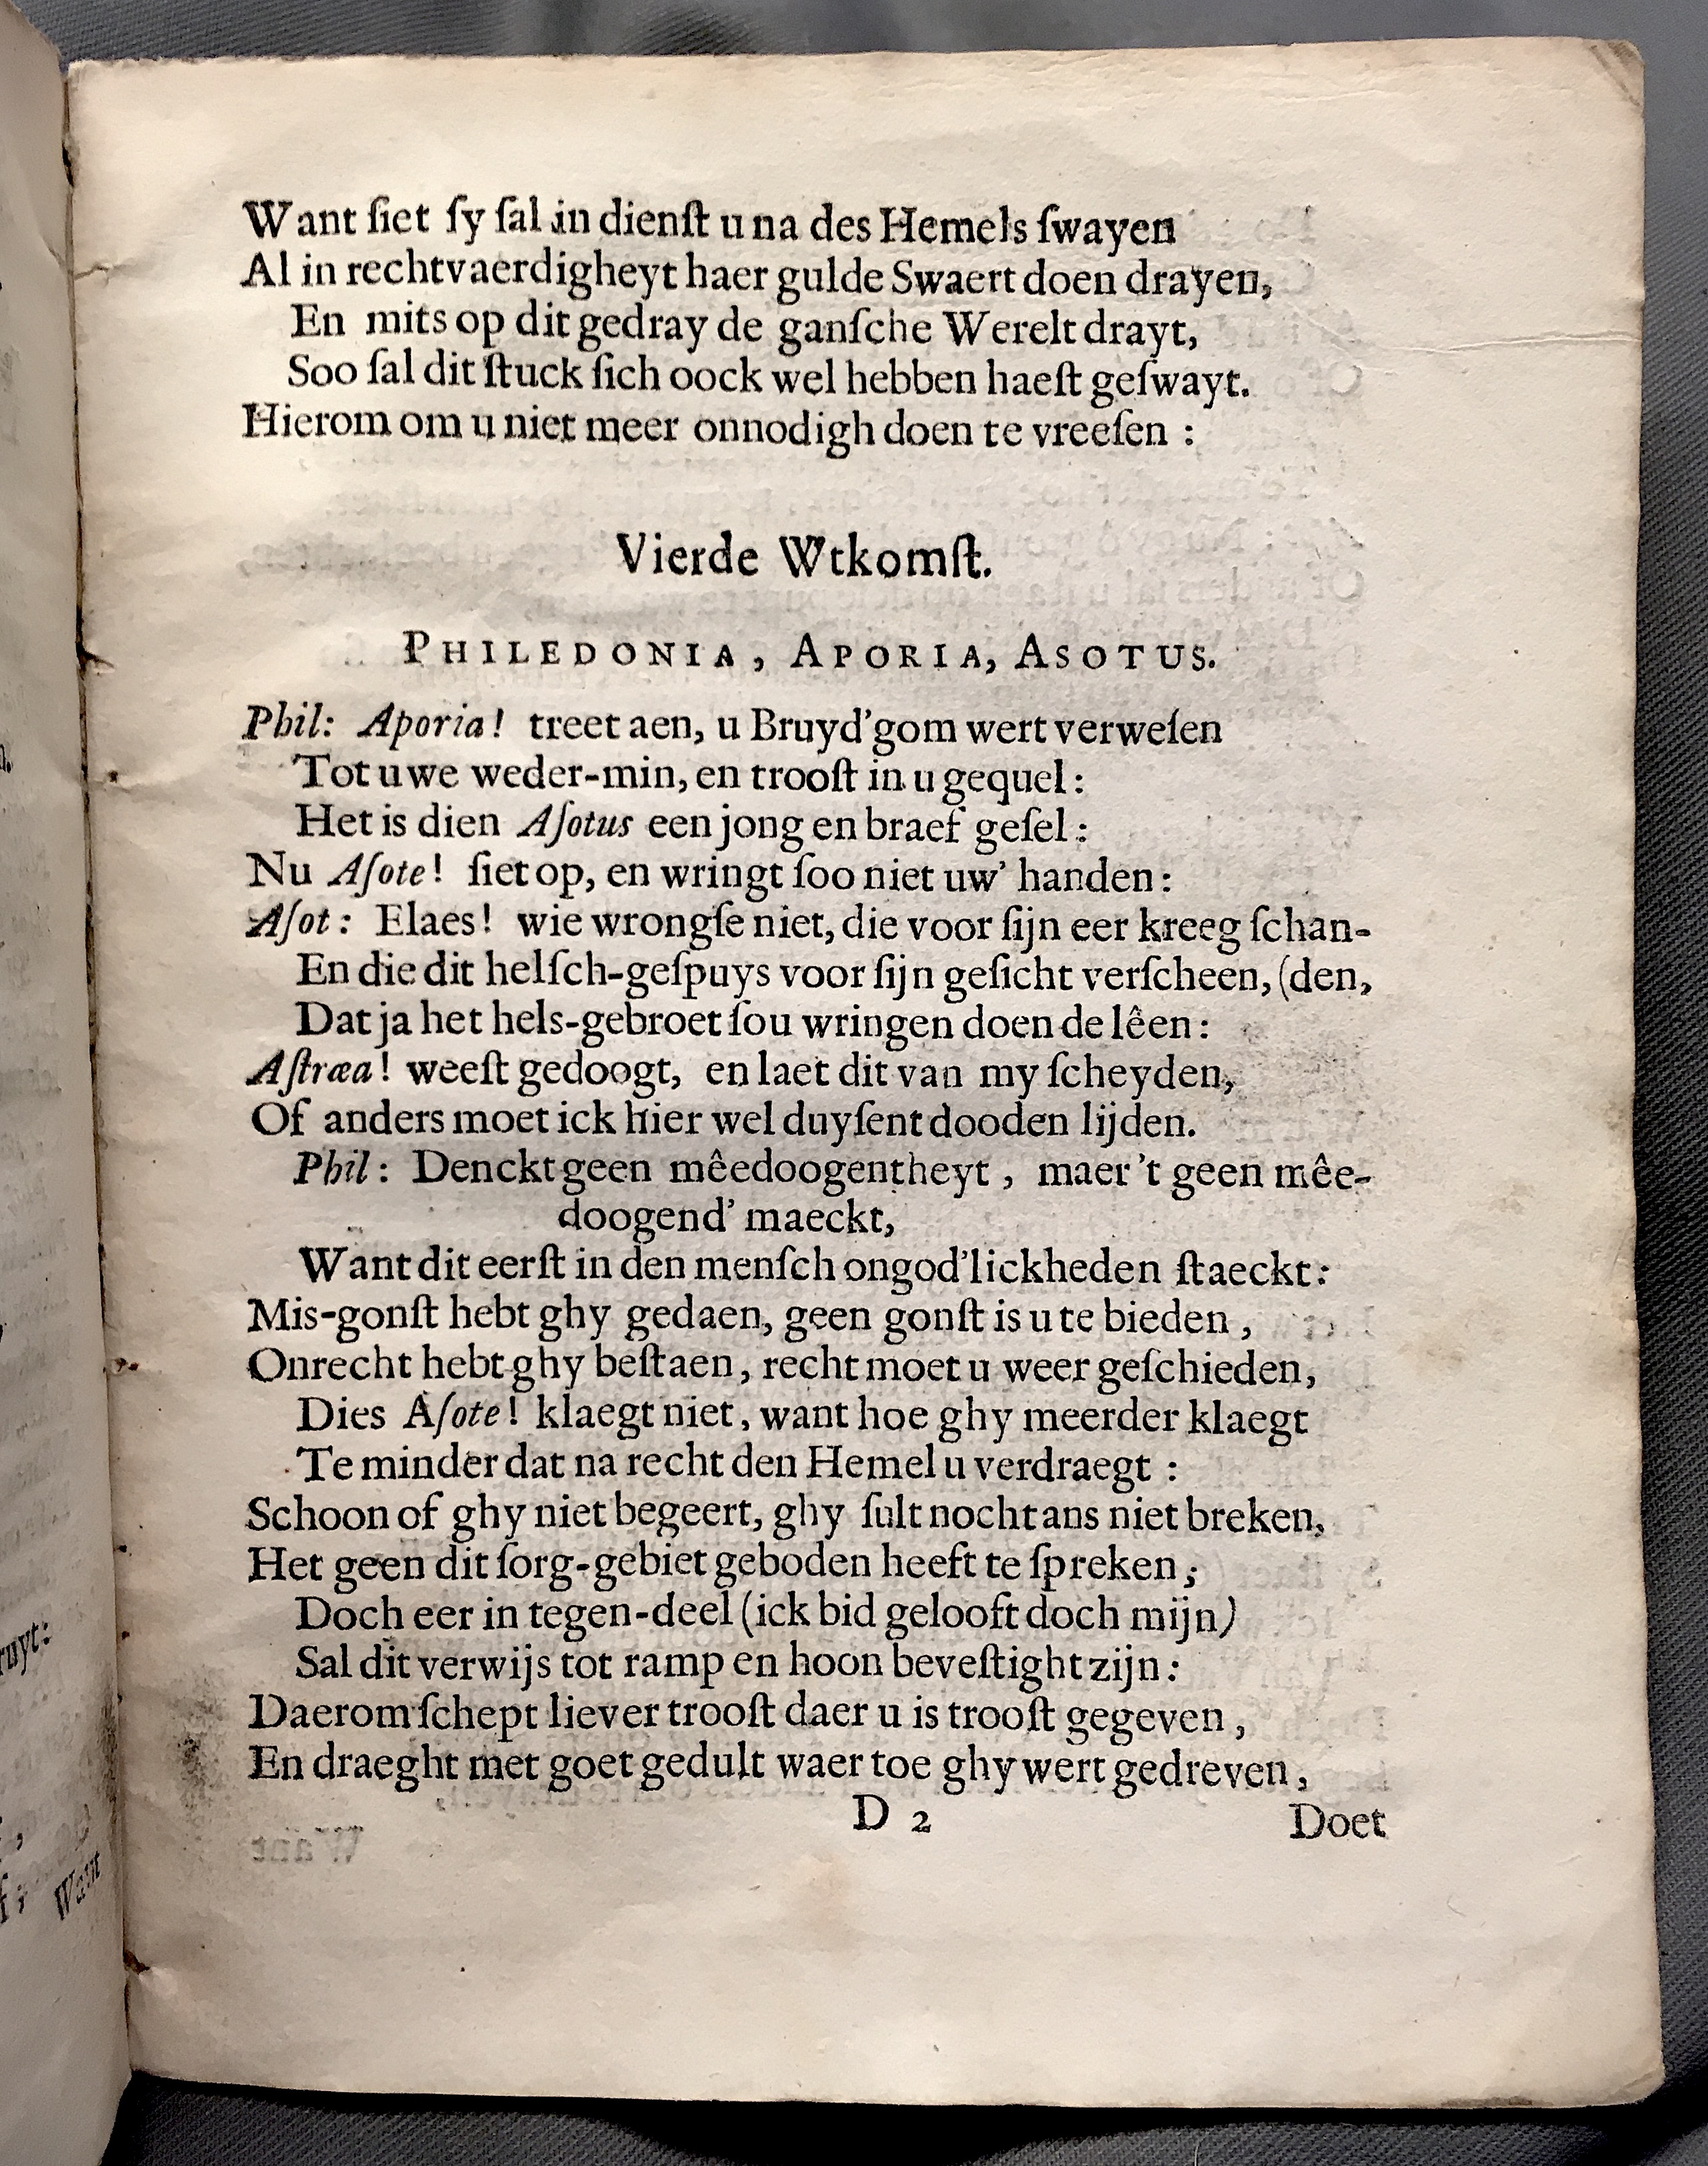 Want ſiet ſy ſal in dienſt u na des Hemels ſwayen
Al in rechtvaerdigheyt haer gulde Swaert doen drayen,
En mits op dit gedray de ganſche Werelt drayt,
Soo ſal dit ſtuck ſich oock wel hebben haeſt geſwayt.
Hierom om u niet meer onnodigh doen te vreeſen :
Vierde Wtkomſt.
PHILEDONIA, APORIA, ASOTUS.
Phil: Aporia! treet aen, u Bruyd'gom wert verweſen
Tot uwe weder-min, en trooſt in u gequel:
Het is dien Aſotus een jong en braef geſel:
Nu Aſote! ſiet op, en wringt ſoo niet uw' handen:
Aſot: Elaes! wie wrongſe niet, die voor ſijn eer kreeg ſchan-
En die dit helſch-geſpuys voor ſijn geſicht verſcheen, (den,
Dat ja het hels-gebroet ſou wringen doen de lêen:
Aſtræa! weeſt gedoogt, en laet dit van my ſcheyden,
Of anders moet ick hier wel duyſent dooden lijden.
Phil: Denckt geen mêedoogentheyt, maer 't geen mêe-
doogend' maeckt,
Want dit eerſt in den menſch ongod'lickheden ſtaeckt:
Mis-gonſt hebt ghy gedaen, geen gonſt is u te bieden,
Onrecht hebt ghy beſtaen, recht moet u weer geſchieden,
Dies Aſote! klaegt niet, want hoe ghy meerder klaegt
Te minder dat na recht den Hemel u verdraegt :
Schoon of ghy niet begeert, ghy ſult nochtans niet breken,
Het geen dit ſorg-gebiet geboden heeft te ſpreken;
Doch eer in tegen-deel (ick bid gelooft doch mijn)
Sal dit verwijs tot ramp en hoon beveſtight zijn:
Daerom ſchept liever trooſt daer u is trooſt gegeven,
En draeght met goet gedult waer toe ghy wert gedreven,
D 2
Doet
ruyt:
Want